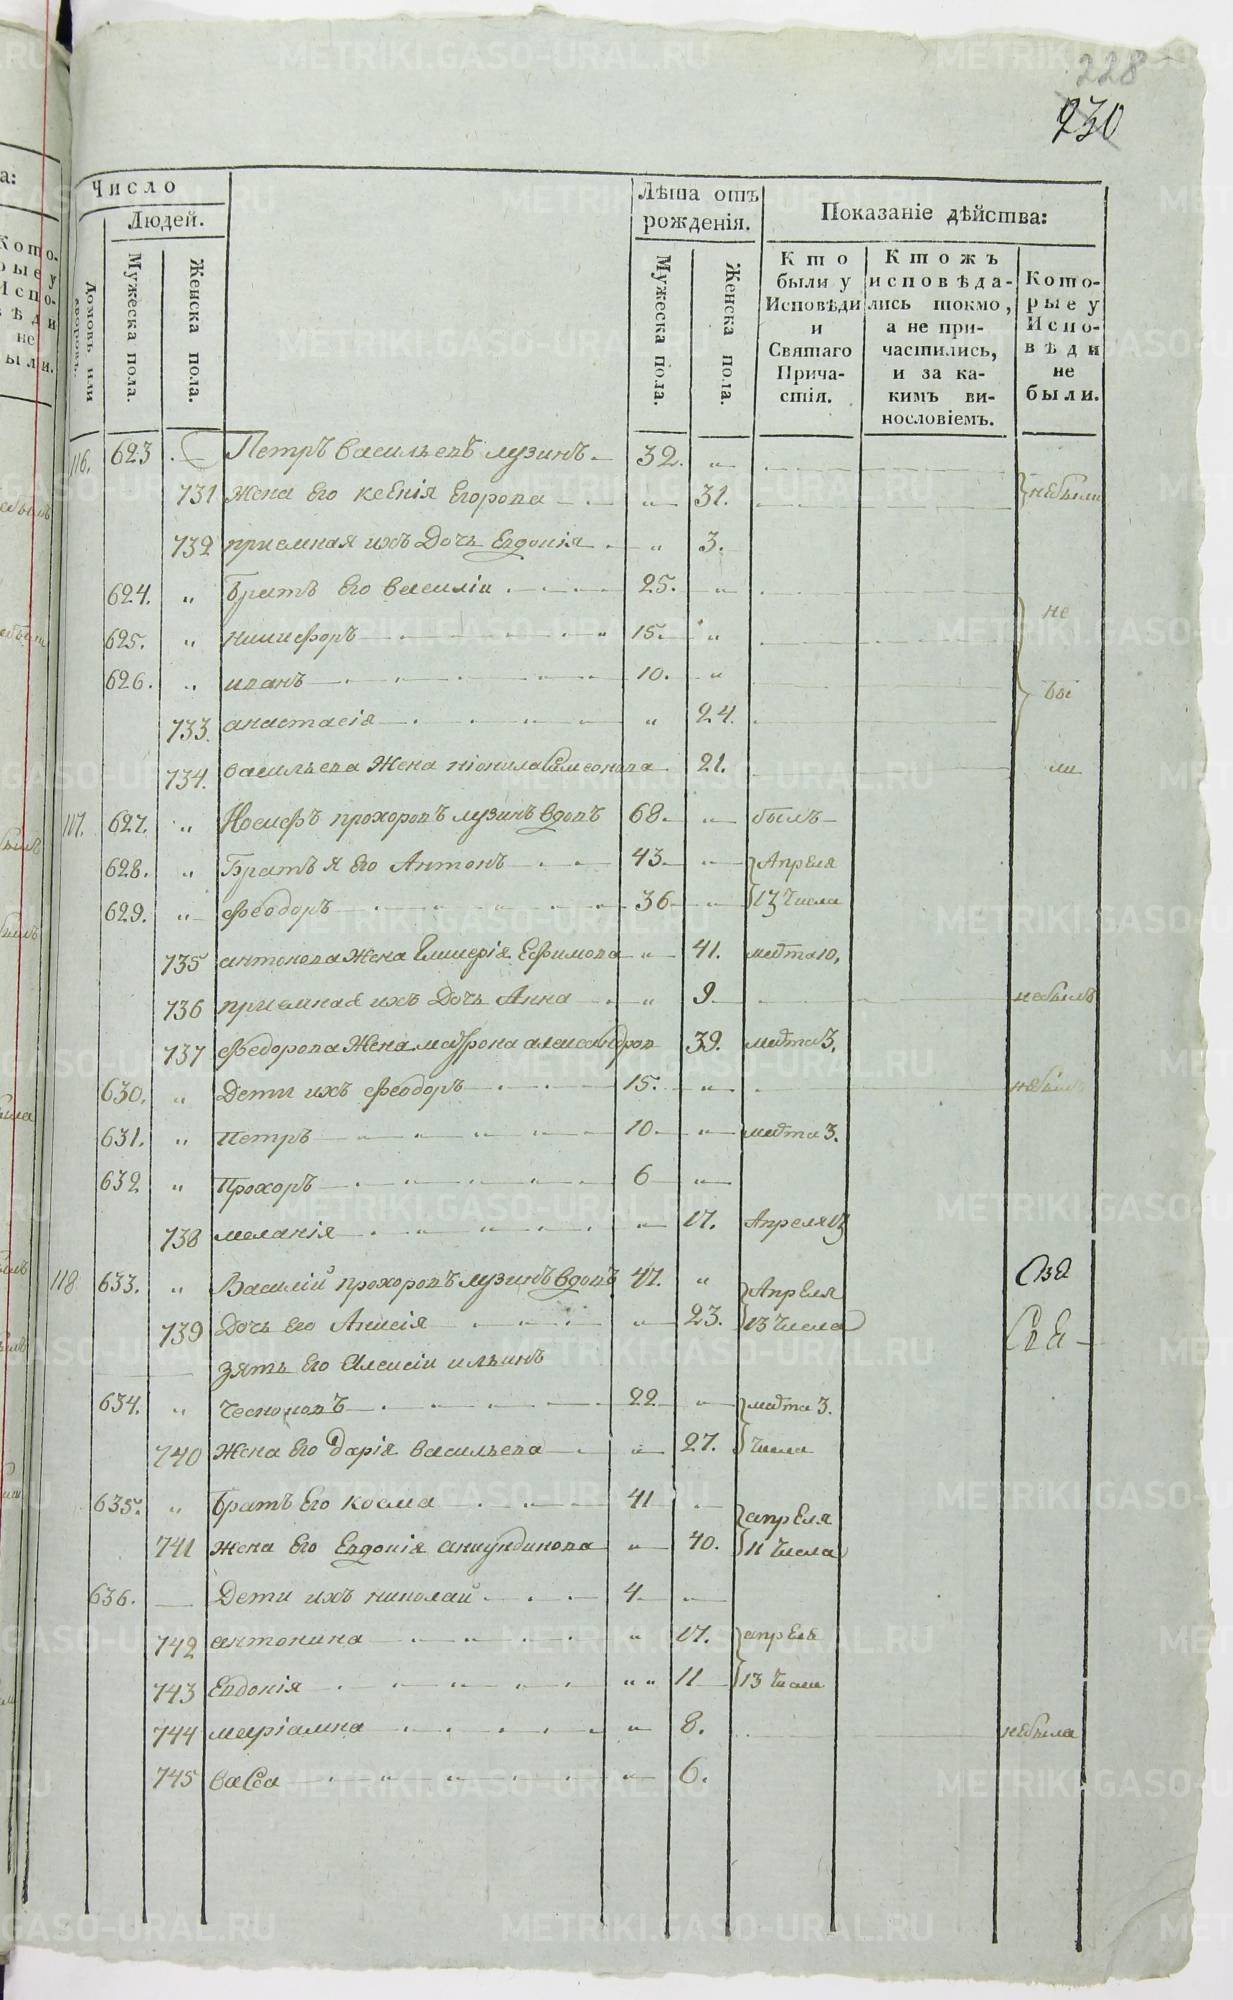 228
230
Число
Людей.
Домовъ или дворовъ.
Мужеска пола.
Женска пола.
Лѣта отъ рожденія.
Мужеска пола.
Женска пола.
Показаніе дѣйства:
Кто были у Исповѣди и Святаго Причастія.
Ктожъ исповѣдались токмо, а не причастились, и за какимъ винословіемъ.
Которые у Исповѣди не были.
116. 623 Петръ Васильевъ Лузинъ 32. „
731 Жена Его Ксенія Егорова „ 31. небыли
732 приемная ихъ Дочь Евдокія „ 3.
624. „ Братъ Его Василіи 25. „
625. „ Никифоръ 15. „ не
626. „ иванъ 10. „ бы
733. анастасія „ 24.
734. васильева Жена Ніонила Симеонова 21. ли
117. 627. „ Иосифъ прохоровъ лузинъ вдовъ 68. „ былъ
628. „ Братья Его Антонъ 43. „ Апреля
629. „ Феодоръ 36 „ 13 Числа
735 антонова Жена Гликерія Ефимова „ 41. марта 10,
736 приемная ихъ Дочь Анна „ 9 небылъ
737 Федорова Жена матрона александров 39. марта 3,
630. „ Дети ихъ Феодоръ 15. „ небылъ
631. „ Петръ 10 „ марта 3.
632 „ Прохоръ 6 „
738 меланія „ 17. Апреля 13
118 633. „ Василій прохоровъ лузинъ вдовъ 47. „ Апреля
739 Дочь его Анисія „ 23. 13 Числа
зять его Алексіи ильинъ
634. „ Чесноковъ 22 „ марта 3.
740 Жена Его Дарія васильева „ 27. Числа
635. „ Братъ Его косма 41 „ апреля
741 жена Его Евдокія анкундинова „ 40. 11 Числа
636. Дети ихъ николай 4 „
742 антонина „ 17. апреля
743 Евдокія „ „ 11 13 Числ
744 маріамна „ 8. небыла
745 васса „ 6.
METRIKI.GASO-URAL.RU